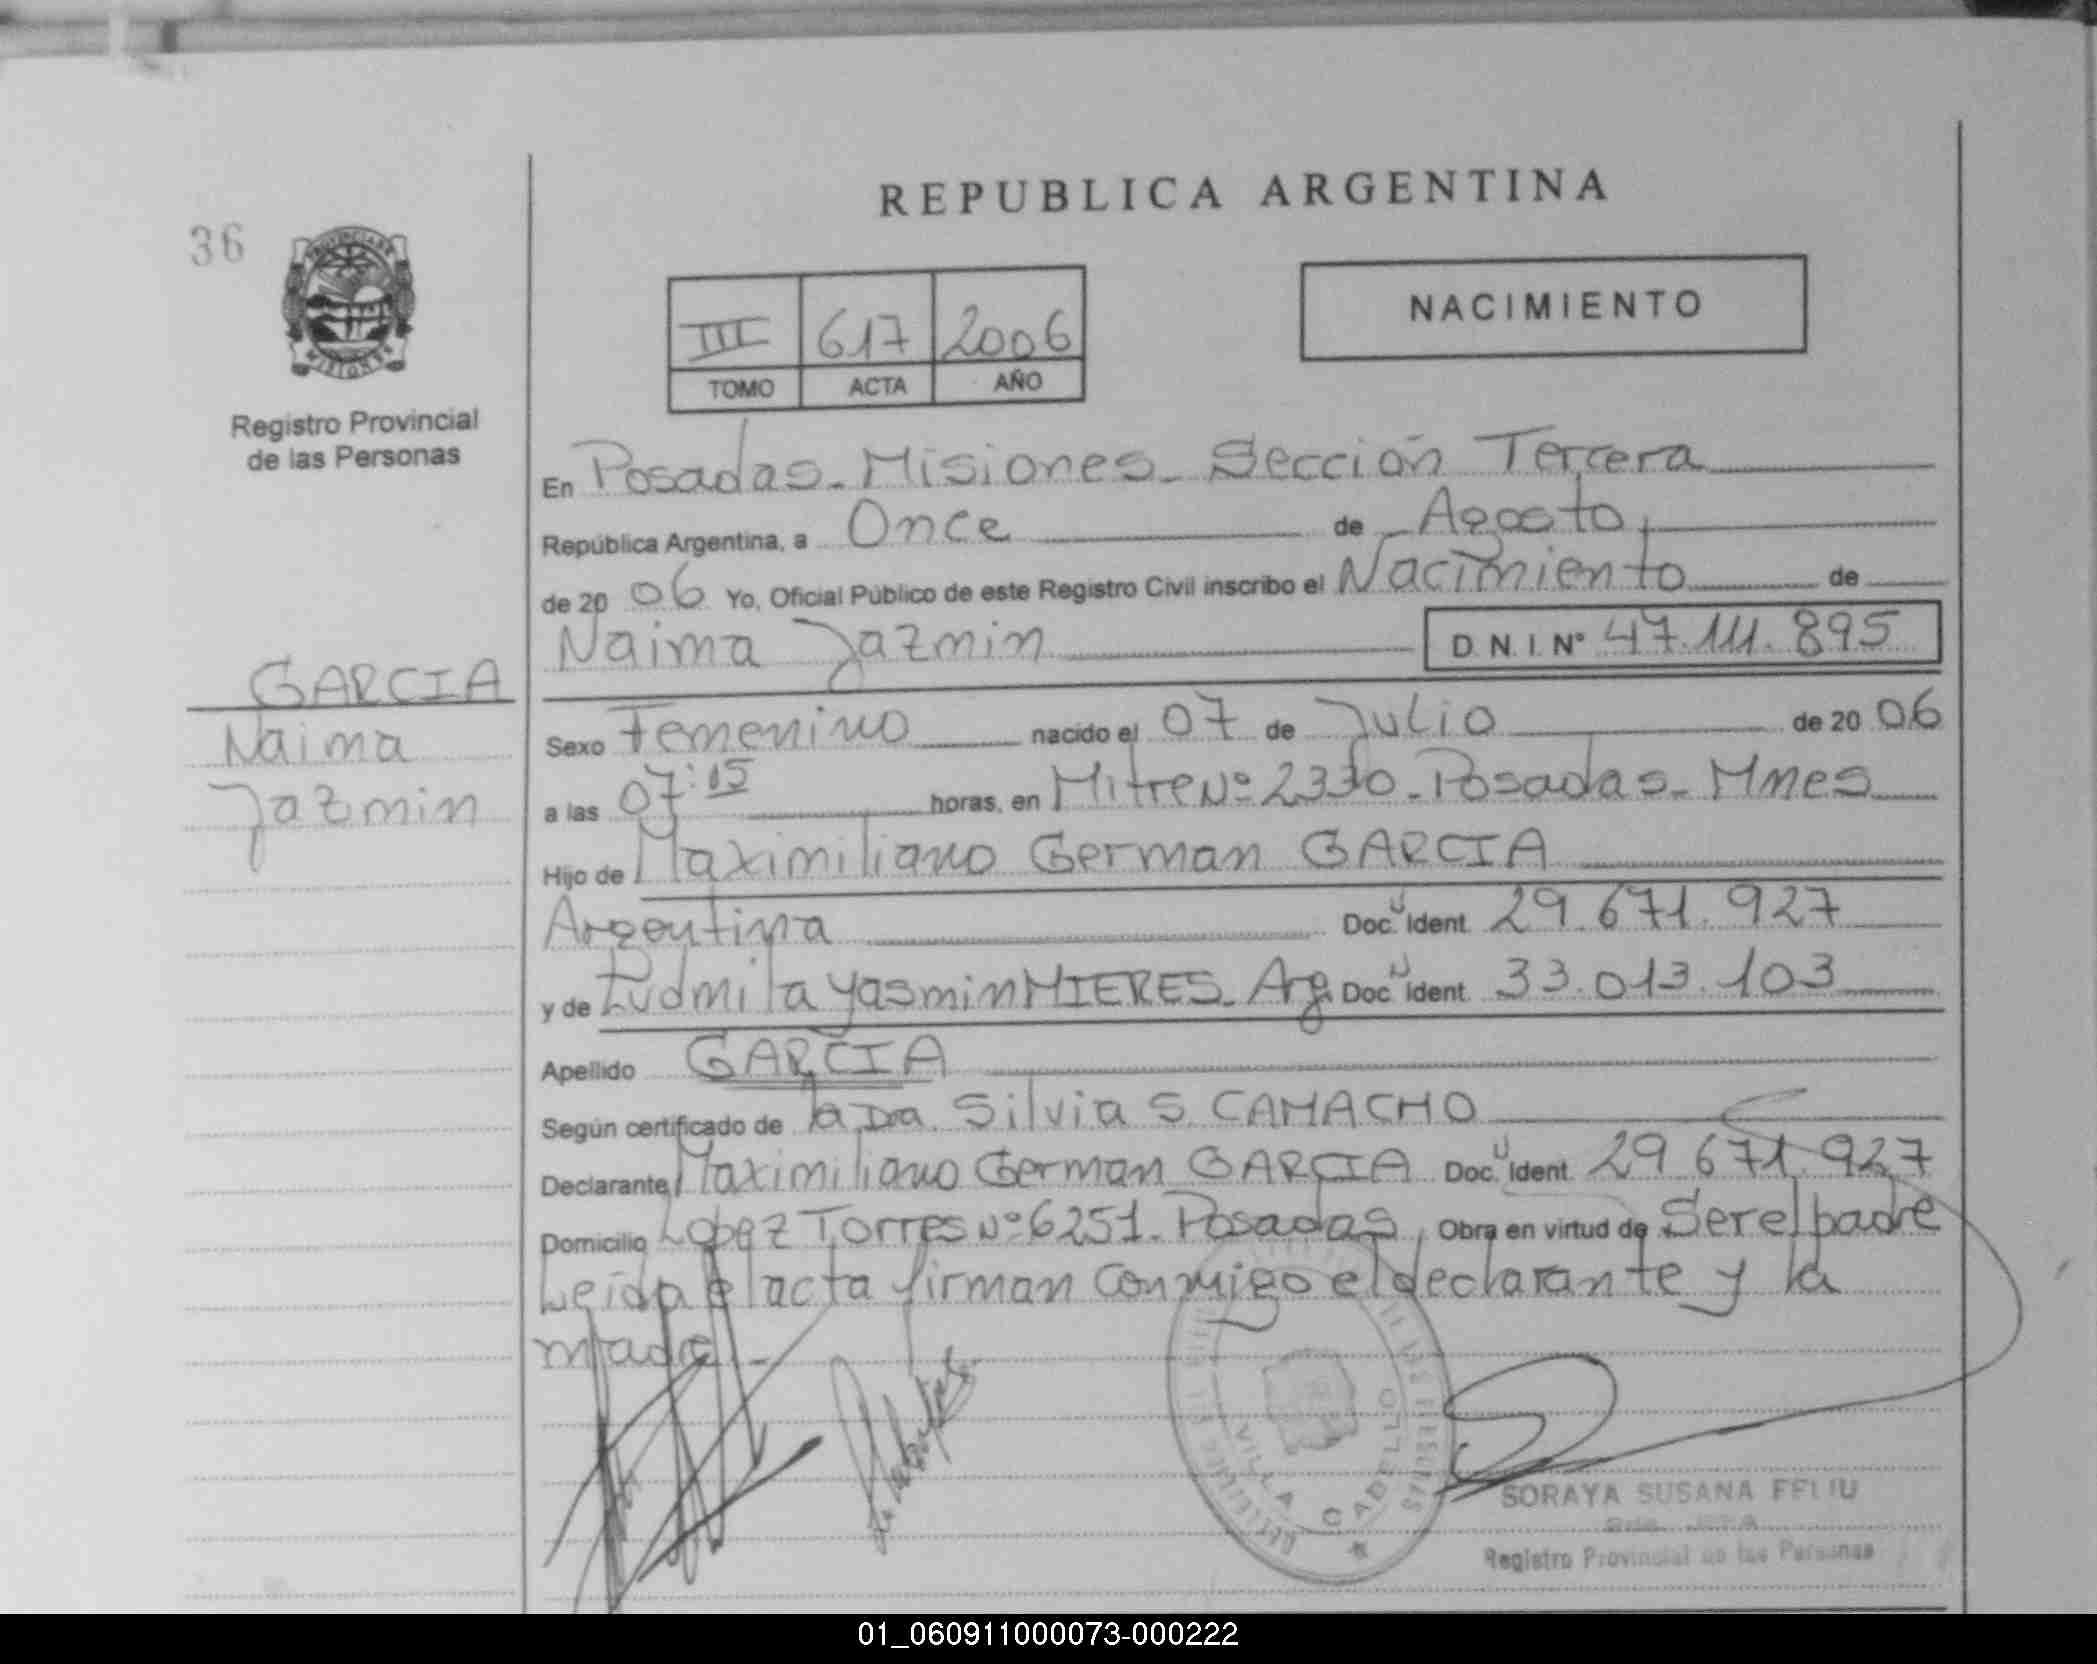 REPUBLICA ARGENTINA
36
PROVINCIA DE
MISIONES
Registro Provincial
de las Personas
III 617 2006
TOMO ACTA AÑO
NACIMIENTO
En Posadas - Misiones - Sección Tercera
República Argentina, a Once de Agosto,
de 20 06 Yo, Oficial Público de este Registro Civil inscribo el Nacimiento de
Naima Jazmin D.N.I. Nº 47.111.895
GARCIA
Naima
Jazmin
Sexo Femenino nacido el 07 de Julio de 20 06
a las 07:15 horas, en Mitre Nº 2330 - Posadas - Mnes
Hijo de Maximiliano German GARCIA
Argentina Doc. Ident. 29.671.927
y de Ludmila Yasmin MIERES - Arg. Doc. Ident. 33.013.103
Apellido GARCIA
Según certificado de la Dra. Silvia S. CAMACHO
Declarante Maximiliano German GARCIA Doc. Ident. 29 671.927
Domicilio Lopez Torres Nº 6251 - Posadas, Obra en virtud de Ser el padre
Leida el acta firman conmigo el declarante y la
madre -
VILLA CABELLO
SORAYA SUSANA FELIU
Registro Provincial de las Personas
01_060911000073-000222